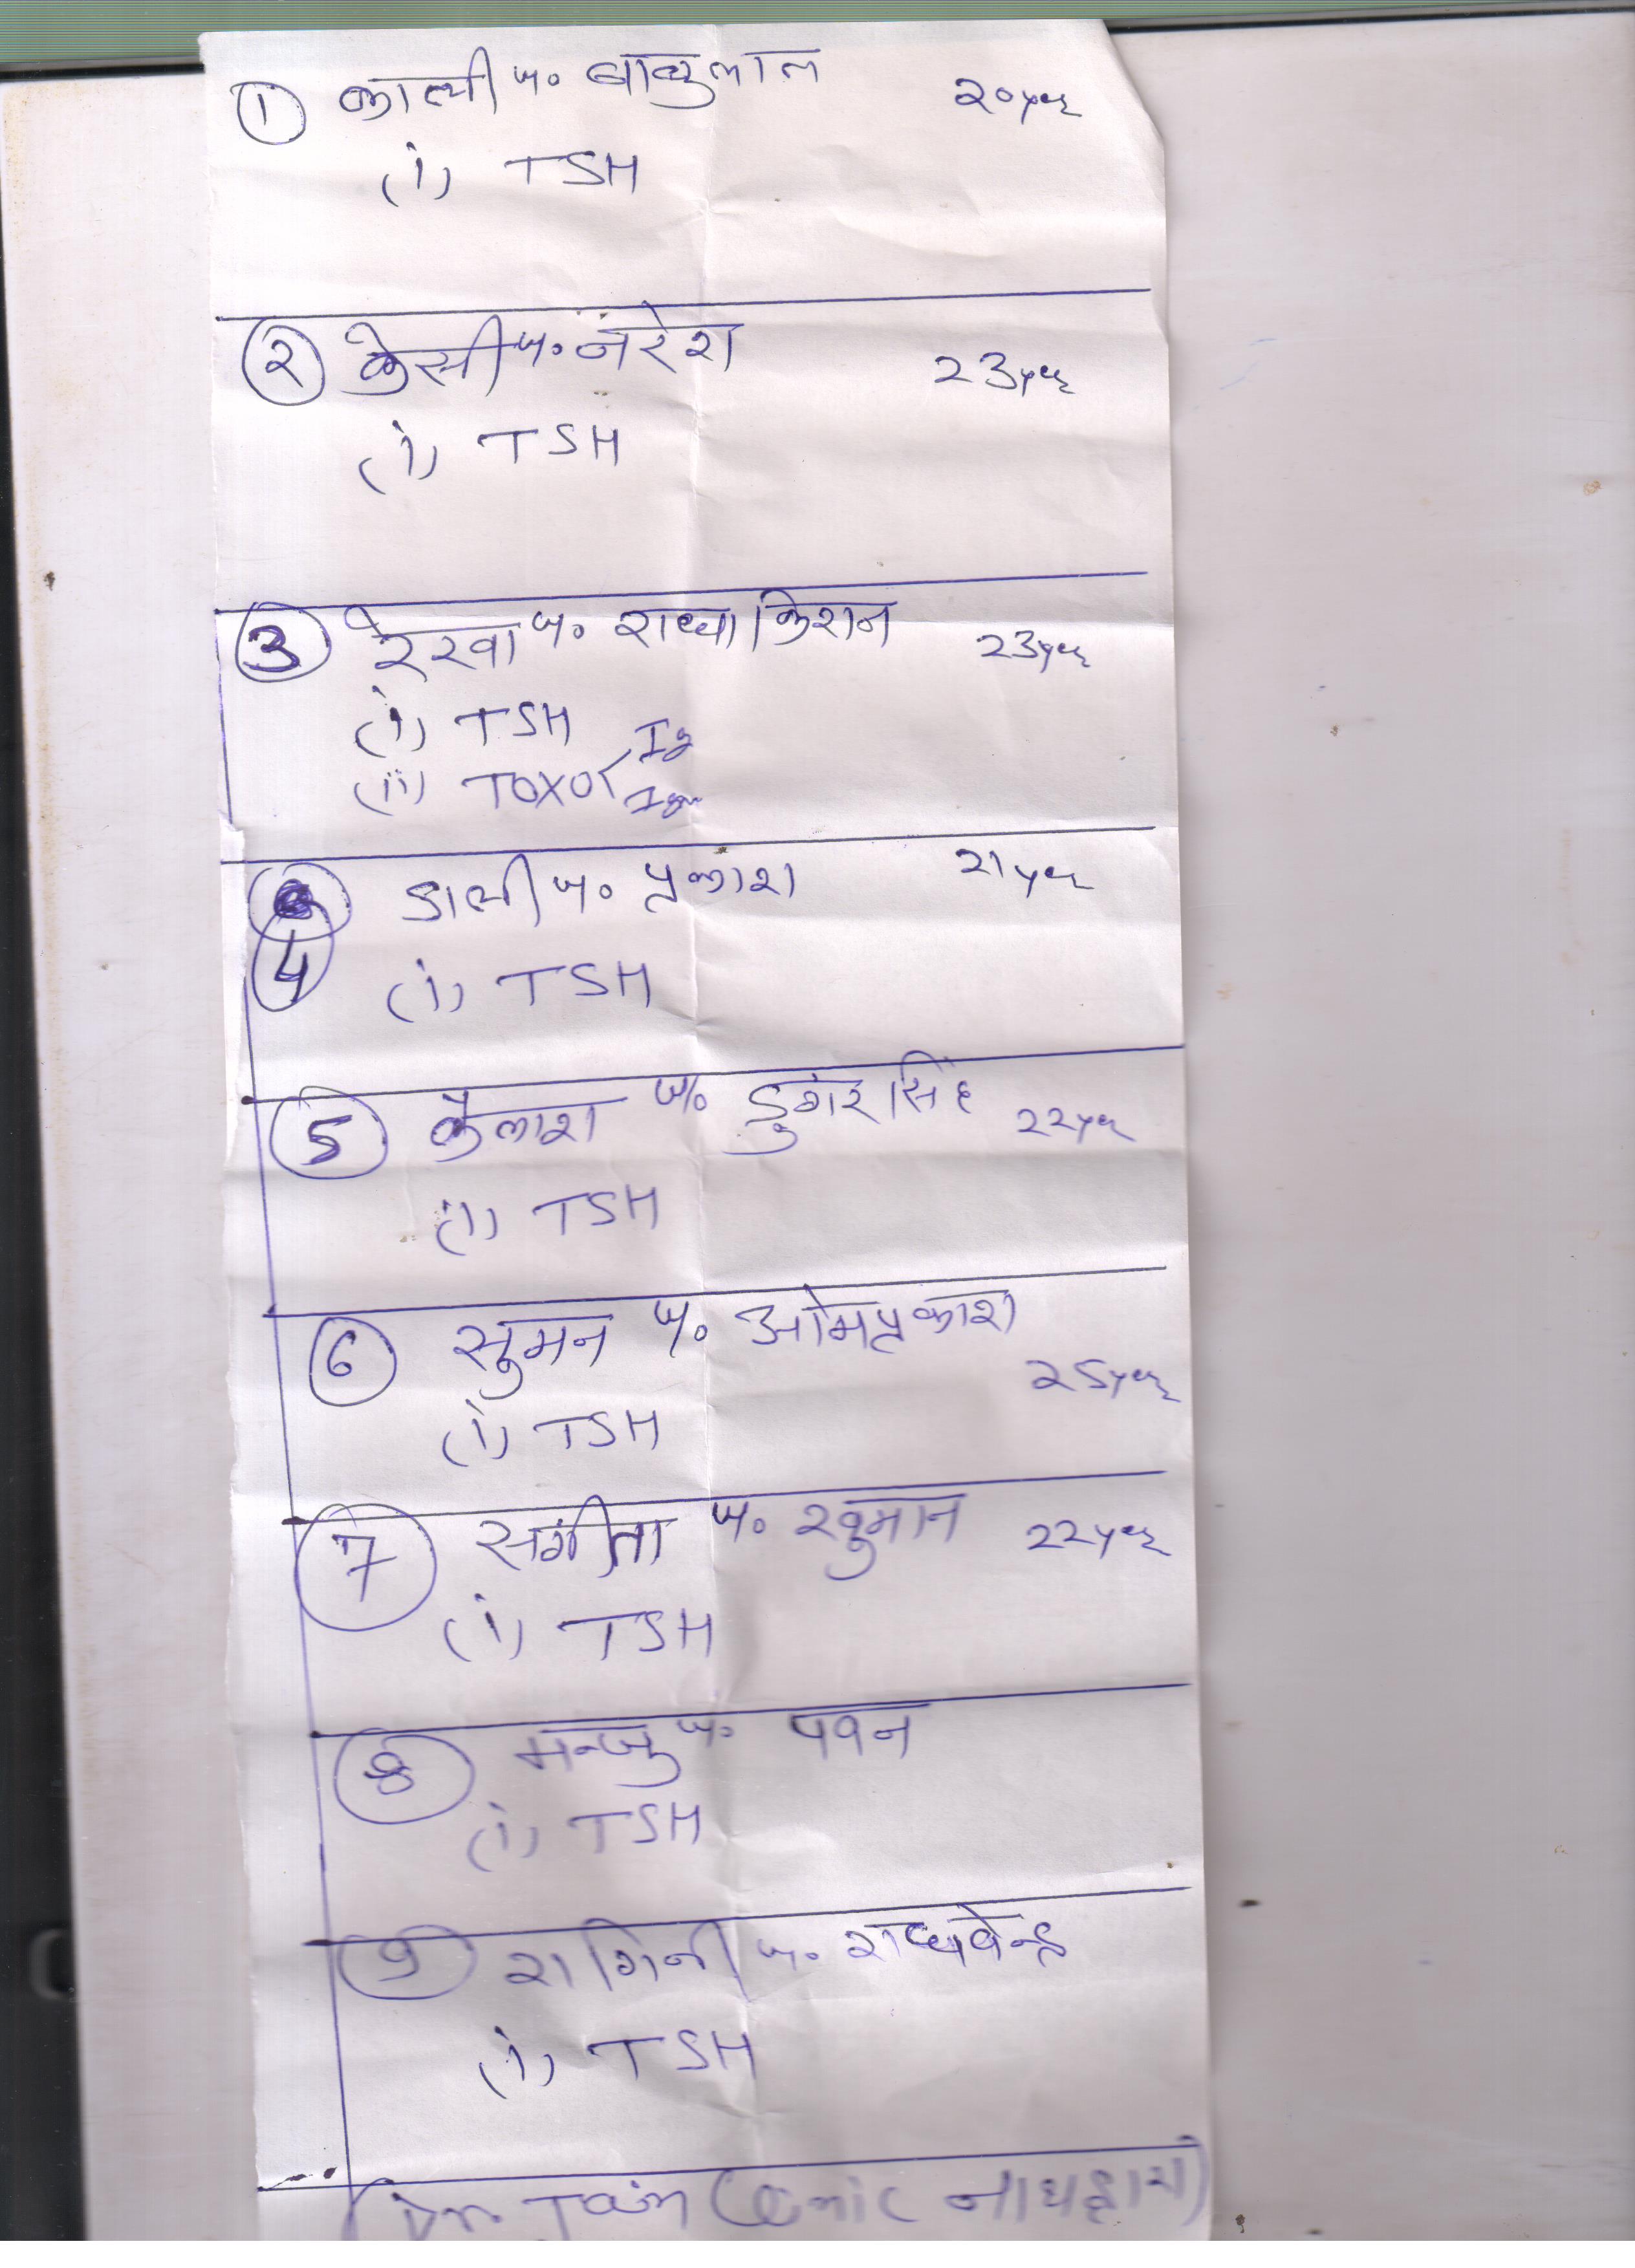 1 काली प. बाबुलाल 20yer
(i) TSH
2 केसी प. नरेश 23yer
(i) TSH
3 रेखा प. राधाकिशन 23yer
(i) TSH
(ii) TOXO < Ig
Igm
4 डाली प. प्रकाश 21yer
(i) TSH
5 कैलाश प. डुगंर सिंह 22yer
(i) TSH
6 सुमन प. ओमप्रकाश
25yer
(i) TSH
7 संगीता प. खुमान 22yer
(i) TSH
8 मन्जु प. पवन
(i) TSH
9 रागिनी प. राघवेन्द्र
(i) TSH
Dr. Jain Clinic नाथद्वारा